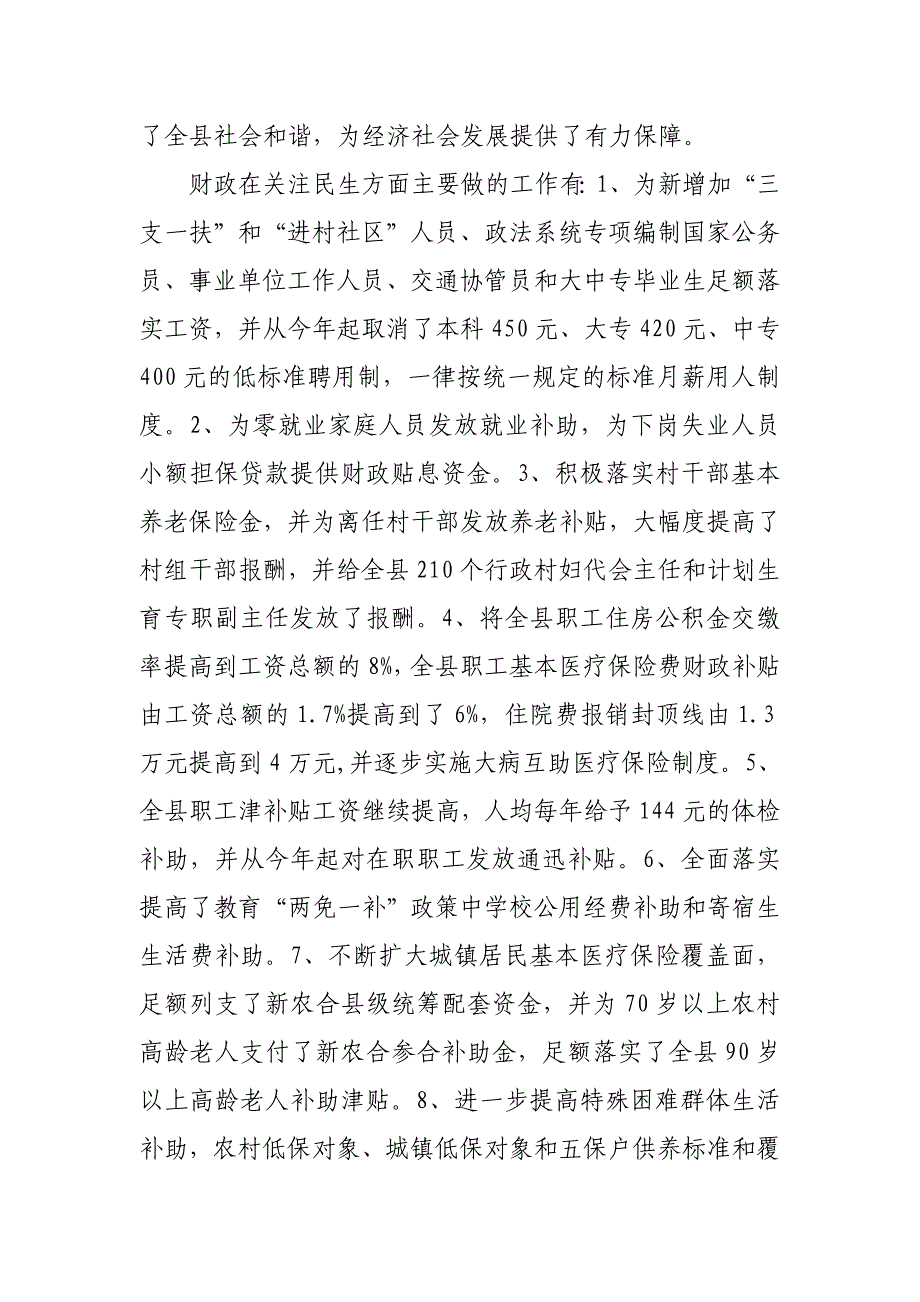 了全县社会和谐，为经济社会发展提供了有力保障。
财政在关注民生方面主要做的工作有：1、为新增加“三
支一扶”和“进村社区”人员、政法系统专项编制国家公务
员、事业单位工作人员、交通协管员和大中专毕业生足额落
实工资，并从今年起取消了本科 450 元、大专 420 元、中专
400 元的低标准聘用制，一律按统一规定的标准月薪用人制
度。2、为零就业家庭人员发放就业补助，为下岗失业人员
小额担保贷款提供财政贴息资金。3、积极落实村干部基本
养老保险金，并为离任村干部发放养老补贴，大幅度提高了
村组干部报酬，并给全县 210 个行政村妇代会主任和计划生
育专职副主任发放了报酬。4、将全县职工住房公积金交缴
率提高到工资总额的 8%,全县职工基本医疗保险费财政补贴
由工资总额的 1.7%提高到了 6%，住院费报销封顶线由 1.3
万元提高到 4 万元,并逐步实施大病互助医疗保险制度。5、
全县职工津补贴工资继续提高，人均每年给予 144 元的体检
补助，并从今年起对在职职工发放通迅补贴。6、全面落实
提高了教育“两免一补”政策中学校公用经费补助和寄宿生
生活费补助。7、不断扩大城镇居民基本医疗保险覆盖面，
足额列支了新农合县级统筹配套资金，并为 70 岁以上农村
高龄老人支付了新农合参合补助金，足额落实了全县 90 岁
以上高龄老人补助津贴。8、进一步提高特殊困难群体生活
补助，农村低保对象、城镇低保对象和五保户供养标准和覆